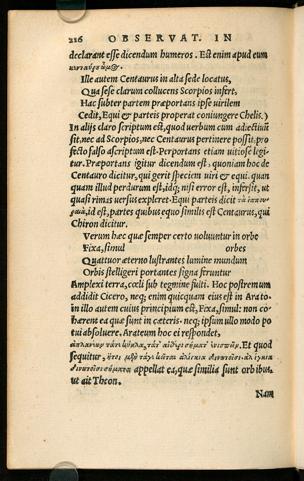 226 OBSERVAT. IN
declarant esse dicendum humeros. Est enim apud eum
Ille autem Centaurus in alta sede locatus,
Qua sese clarum collucens Scorpios infert,
Hac subter partem præportans ipse virilem
Cedit, Equi & parteis properat coniungere Chelis.)
In alijs claro scriptum est, quod verbum cum adiectiuũ
sit, nec ad Scorpios, nec Centaurus pertinere possit: pro
fecto falso ascriptum est. Perportans etiam uitiose legi
tur. Præportans igitur dicendum est: quoniam hoc de
Centauro dicitur, qui gerit speciem uiri & equi. quan
quam illud perdurum est, idq; nisi error est, infersit, ut
quasi rimas uersus expleret. Equi parteis dicit
id est, partes quibus equo similis est Centaurus, qui
Chiron dicitur.
Verum hæc quæ semper certo uoluuntur in orbe
Fixa, simul orbes
Quattuor æterno lustrantes lumine mundum
Orbis stelligeri portantes signa feruntur
Amplexi terra, cœli sub tegmine fulti. Hoc postremum
addidit Cicero, neq; enim quicquam eius est in Arato.
in illo autem cuius principium est, Fixa, simul: non co
hærent ea quæ sunt in cæteris. neq; ipsum ullo modo po
tui absoluere. Arateum hoc ei respondet,
Et quod
sequitur,
appellat ea, quæ similia sunt orbibus.
ut ait Theon.
Nam